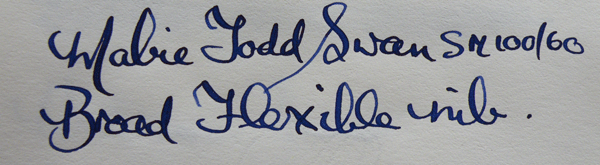 Mabie Todd Swan SM100/60
Broad Flexible nib.